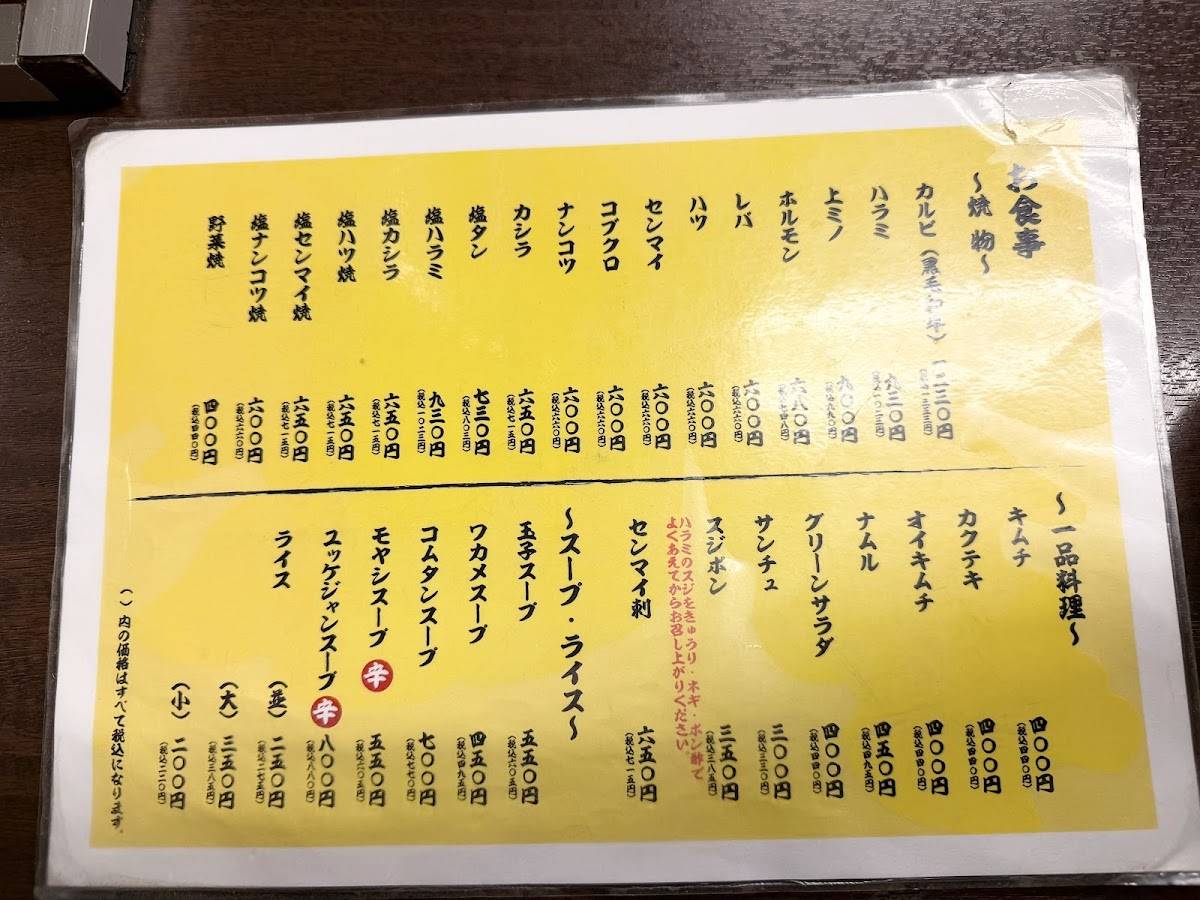 お食事
～焼物～
カルビ（黒毛和牛） 一二三〇円
（税込一三五三円）
ハラミ 九三〇円
（税込一〇二三円）
上ミノ 九〇〇円
（税込九九〇円）
ホルモン 六八〇円
（税込七四八円）
レバ 六〇〇円
（税込六六〇円）
ハツ 六〇〇円
（税込六六〇円）
センマイ 六〇〇円
（税込六六〇円）
コブクロ 六〇〇円
（税込六六〇円）
ナンコツ 六〇〇円
（税込六六〇円）
カシラ 六五〇円
（税込七一五円）
塩タン 七三〇円
（税込八〇三円）
塩ハラミ 九三〇円
（税込一〇二三円）
塩カシラ 六五〇円
（税込七一五円）
塩ハツ焼 六五〇円
（税込七一五円）
塩センマイ焼 六五〇円
（税込七一五円）
塩ナンコツ焼 六〇〇円
（税込六六〇円）
野菜焼 四〇〇円
（税込四四〇円）
～一品料理～
キムチ 四〇〇円
（税込四四〇円）
カクテキ 四〇〇円
（税込四四〇円）
オイキムチ 四〇〇円
（税込四四〇円）
ナムル 四五〇円
（税込四九五円）
グリーンサラダ 四〇〇円
（税込四四〇円）
サンチュ 三〇〇円
（税込三三〇円）
スジポン 三五〇円
（税込三八五円）
ハラミのスジをきゅうり・ネギ・ポン酢で
よくあえてからお召し上がりください。
センマイ刺 六五〇円
（税込七一五円）
～スープ・ライス～
玉子スープ 五五〇円
（税込六〇五円）
ワカメスープ 四五〇円
（税込四九五円）
コムタンスープ 七〇〇円
（税込七七〇円）
モヤシスープ 辛 五五〇円
（税込六〇五円）
ユッケジャンスープ 辛 八〇〇円
（税込八八〇円）
ライス （並） 二五〇円
（税込二七五円）
（大） 三五〇円
（税込三八五円）
（小） 二〇〇円
（税込二二〇円）
（ ）内の価格はすべて税込になります。